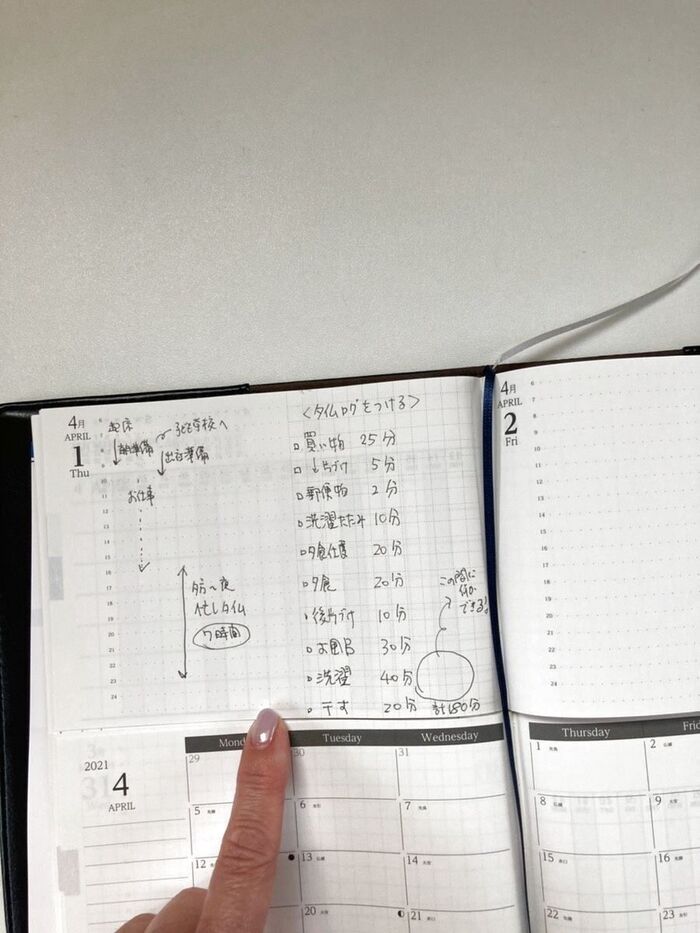 4月
APRIL
1
Thu
6
7
8
9
10
11
12
13
14
15
16
17
18
19
20
21
22
23
24
起床
朝準備
子ども学校へ
出社準備
お仕事
夕方〜夜
忙しタイム
7時間
<タイムログをつける>
買い物 25分
↓片づけ 5分
郵便物 2分
洗濯たたみ 10分
夕食仕度 20分
夕食 20分
後片づけ 10分
お風呂 30分
洗濯 40分
干す 20分
計180分
この間に
何か
できる!
4月
APRIL
2
Fri
2021
4
APRIL
Mon
Tuesday
Wednesday
Thursday
29
30
31
1
2
5
6
7
8
9
12
13
14
15
16
20
21
22
23